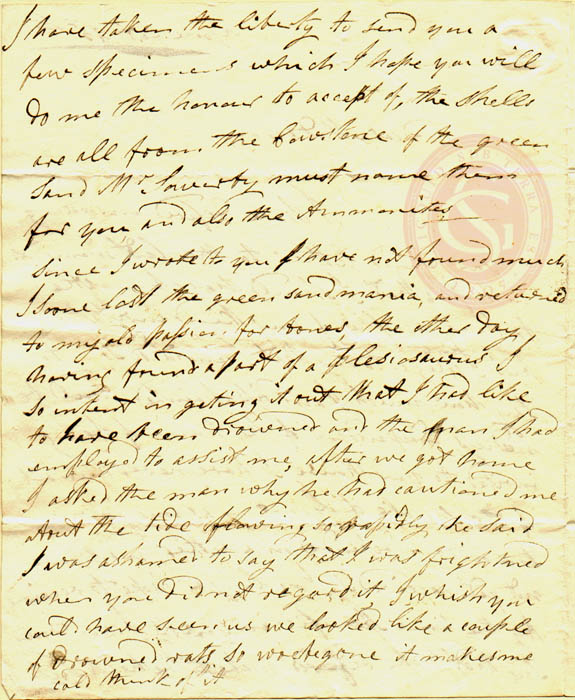 I have taken the liberty to send you a
few specimens which I hope you will
do me the honour to accept of, the shells
are all from the Cowstone of the green
Sand Mr Sowerby must name them
for you, and also the Ammonites
since I wrote to you I have not found much
I soone lost the green sand mania, and returned
to my old passion for bones, the other day,
having found a part of a plesiosaurus I
so intent in geting it out that I had like
to have been drowned and the man I had
employd to assist me, after we got home
I asked the man why he had cautioned me
about the tide flowing so rapidly he said
I was ashamed to say that I was frightned
when you did not regard it I whish you
could have seen us we looked like a couple
of drowned rats, so it makes me
cold think of it